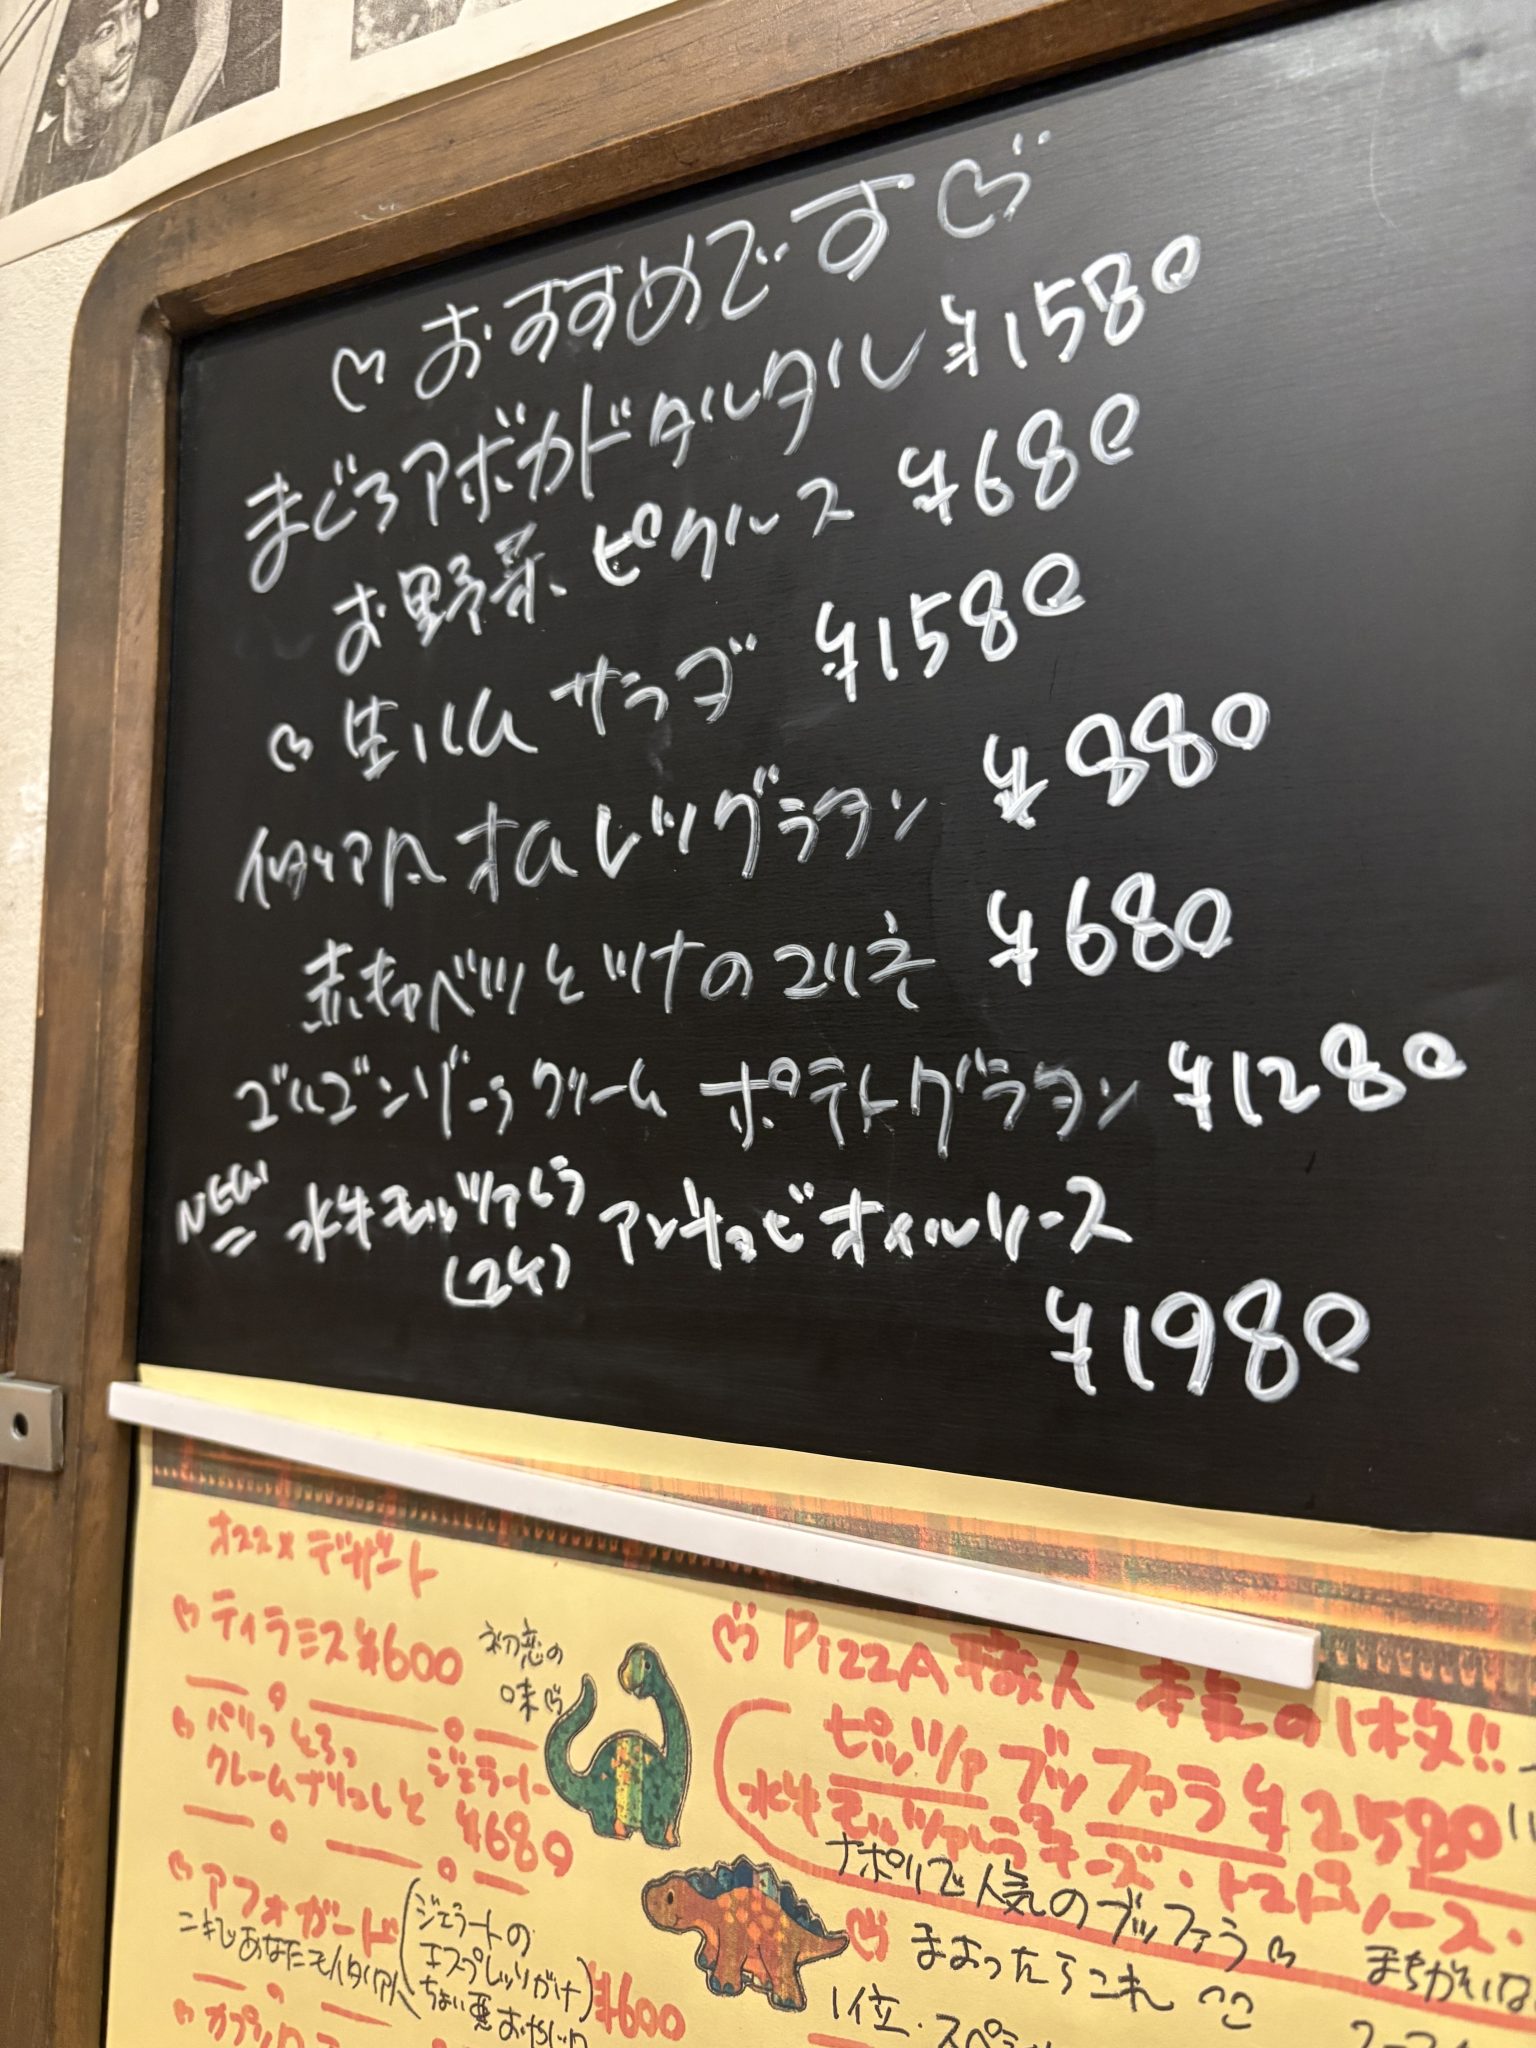 ♡おすすめです♡
まぐろアボカドタルタル ¥1580
お野菜ピクルス ¥680
♡生ハムサラダ ¥1580
イタリア風オムレツグラタン ¥880
赤キャベツとツナのマリネ ¥680
ゴルゴンゾーラクリームポテトグラタン ¥1280
NEW 水牛モッツァレラ アンチョビオイルソース
(24)
¥1980
オススメデザート
♡ティラミス¥600
初恋の
味♡
♡パリっとろっ
クレームブリュレと ジェラート
¥680
♡アフォガード
(ジェラートの
エスプレッソがけ)
¥600
これであなたもイタリア人
ちょい悪おやじ
♡カプチーノ
♡PizzA職人 本気の1枚!!
ピッツァブッファラ¥2580
水牛モッツァレラチーズ・トマトソース・
ナポリで人気のブッファラ♡
♡まよったらこれ
まちがいな
1位・スペシ